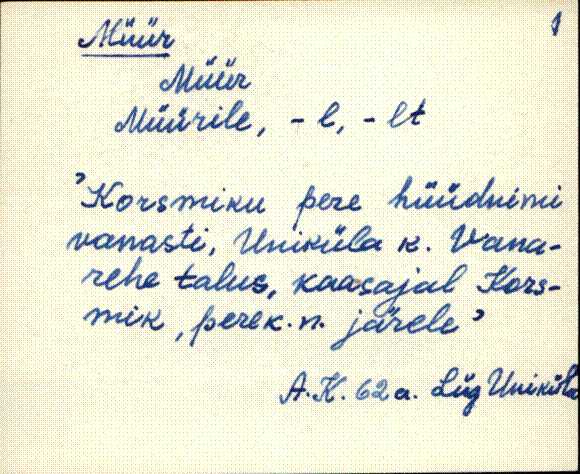 1
Müür
Müür
Müürile, -l, -lt
"Korsmiku pere hüüdnimi
vanasti, Uniküla k. Vana-
rehe talus, kaasajal Kors-
mik, perek. n. järele"
A. K. 62 a. Lüg Uniküla